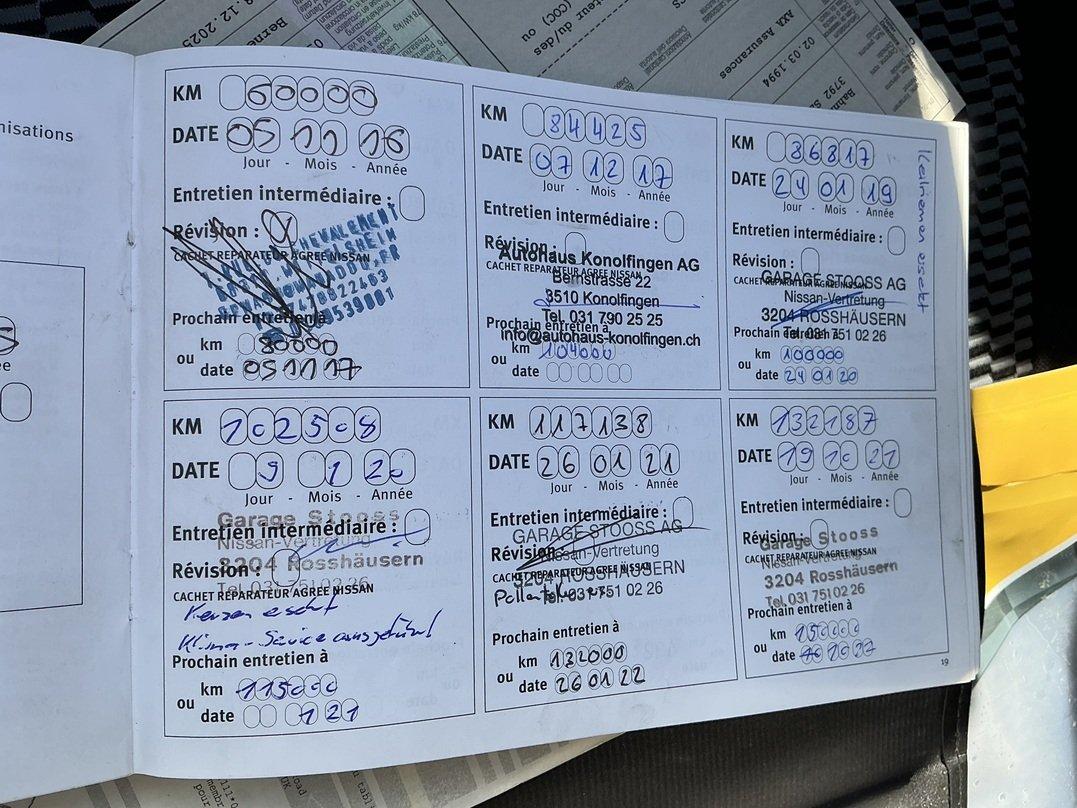 nisations
KM 60000
DATE 05 11 16
Jour - Mois - Année
Entretien intermédiaire :
Révision :
CACHET REPARATEUR AGREE NISSAN
Prochain entretien à
km 80000
ou
date 05 11 17
KM 84425
DATE 07 12 17
Jour - Mois - Année
Entretien intermédiaire :
Révision :
Autohaus Konolfingen AG
CACHET REPARATEUR AGREE NISSAN
Bernstrasse 22
3510 Konolfingen
Tel. 031 790 25 25
Prochain entretien à
info@autohaus-konolfingen.ch
km 104000
ou
date
KM 86817
DATE 24 01 19
Jour - Mois - Année
Entretien intermédiaire :
Révision :
GARAGE STOOSS AG
CACHET REPARATEUR AGREE NISSAN
Nissan-Vertretung
3204 ROSSHÄUSERN
Tel. 031 751 02 26
Prochain entretien à
km 100000
ou
date 24 01 20
KM 102508
DATE 9 1 20
Jour - Mois - Année
Garage Stooss
Entretien intermédiaire :
Nissan-Vertretung
Révision :
3204 Rosshäusern
Tel. 031 751 02 26
CACHET REPARATEUR AGREE NISSAN
Kerzen ersetzt
Klima-Service ausgeführt
Prochain entretien à
km 115000
ou
date 1 21
KM 117138
DATE 26 01 21
Jour - Mois - Année
Entretien intermédiaire :
GARAGE STOOSS AG
Révision :
Nissan-Vertretung
CACHET REPARATEUR AGREE NISSAN
3204 ROSSHÄUSERN
Tel. 031 751 02 26
Prochain entretien à
km 132000
ou
date 26 01 22
KM 132187
DATE 19 10 21
Jour - Mois - Année
Entretien intermédiaire :
Révision :
Garage Stooss
Nissan-Vertretung
CACHET REPARATEUR AGREE NISSAN
3204 Rosshäusern
Tel. 031 751 02 26
Prochain entretien à
km 150000
ou
date
19
AXA Assurances
02.03.1994